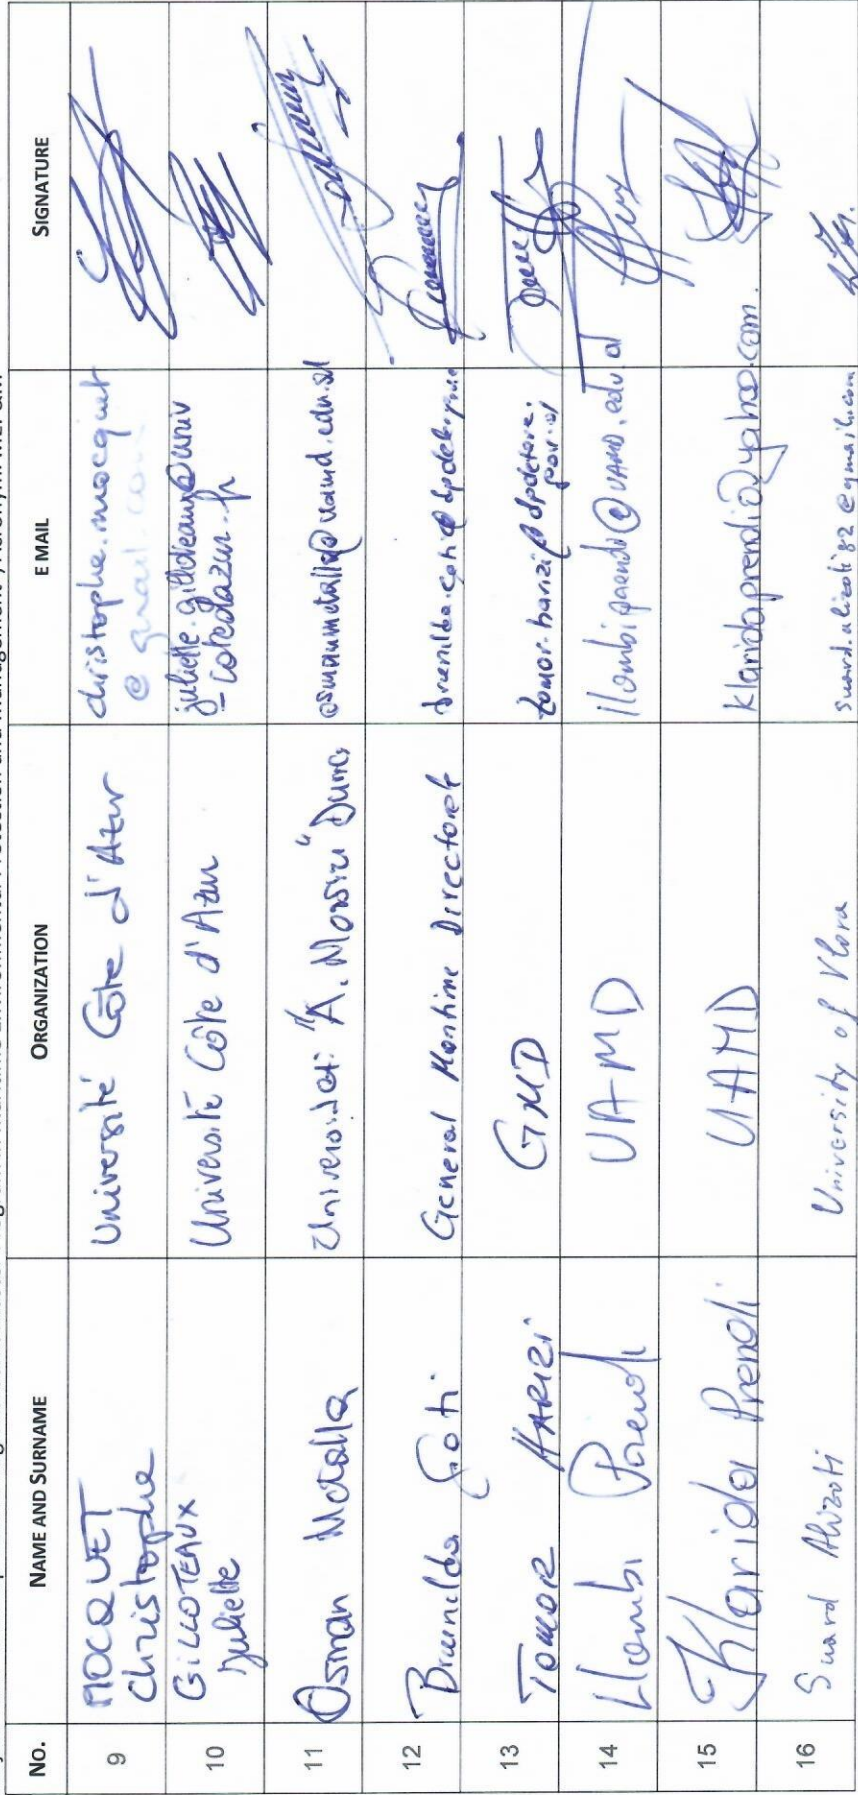 No.
NAME AND SURNAME
ORGANIZATION
E MAIL
SIGNATURE
9
MOCQUET
Christophe
Université Côte d'Azur
christophe.mocquet
@ gmail.com
10
GILLOTEAUX
Juliette
Université Côte d'Azur
juliette.gilloteaux@univ
-cotedazur.fr
11
Osman Metalla
"A. Moisiu" Durres
osmanmetalla@uamd.edu.al
12
Brunilda
General Maritime Directorat
13
TOMOR HARIZI
GMD
14
Llambi Prendi
UAMD
llambiprendi@uamd.edu.al
15
Klarida Prendi
UAMD
klaridaprendi@yahoo.com.
16
Suard Alizoti
University of Vlora
suard.alizoti82@gmail.com